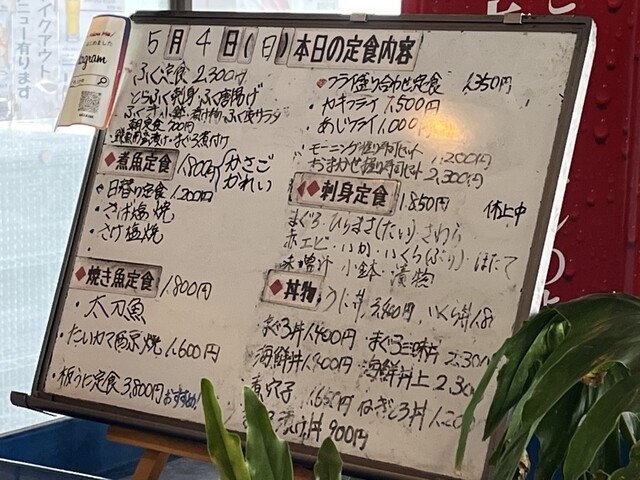 5月4日(日)本日の定食内容
ふく定食 2,300円
とらふく刺身・ふく唐揚げ
小鉢・漬け物・ふく皮サラダ
朝定食 700円
まぐろ煮付け
◆煮魚定食 1,800円 かさご かれい
・日替り定食 1,200円
・さば塩焼
・さけ塩焼
◆焼き魚定食 1,800円
・太刀魚
・たいカマ西京焼 1,600円
・板うに定食 3,800円 おすすめ!
◆フライ盛り合わせ定食 1,350円
・カキフライ 1,500円
・あじフライ 1,000円
・モーニング握り寿司セット 1,200円
・おまかせ握り寿司セット 2,300円
◆刺身定食 1,850円 休止中
まぐろ・ひらまさ(たい)・さわら
赤エビ・いか・いくら(ぶり)・ほたて
味噌汁 小鉢・漬物
◆丼物
うに丼
いくら丼
まぐろ丼 1,400円
まぐろ三味丼 2,300
海鮮丼 1,900円
海鮮丼上 2,300
煮穴子 1,650円
ねぎとろ丼 1,200
漬け丼 900円
イクアウト
ニュー有ります
はじめました
gram